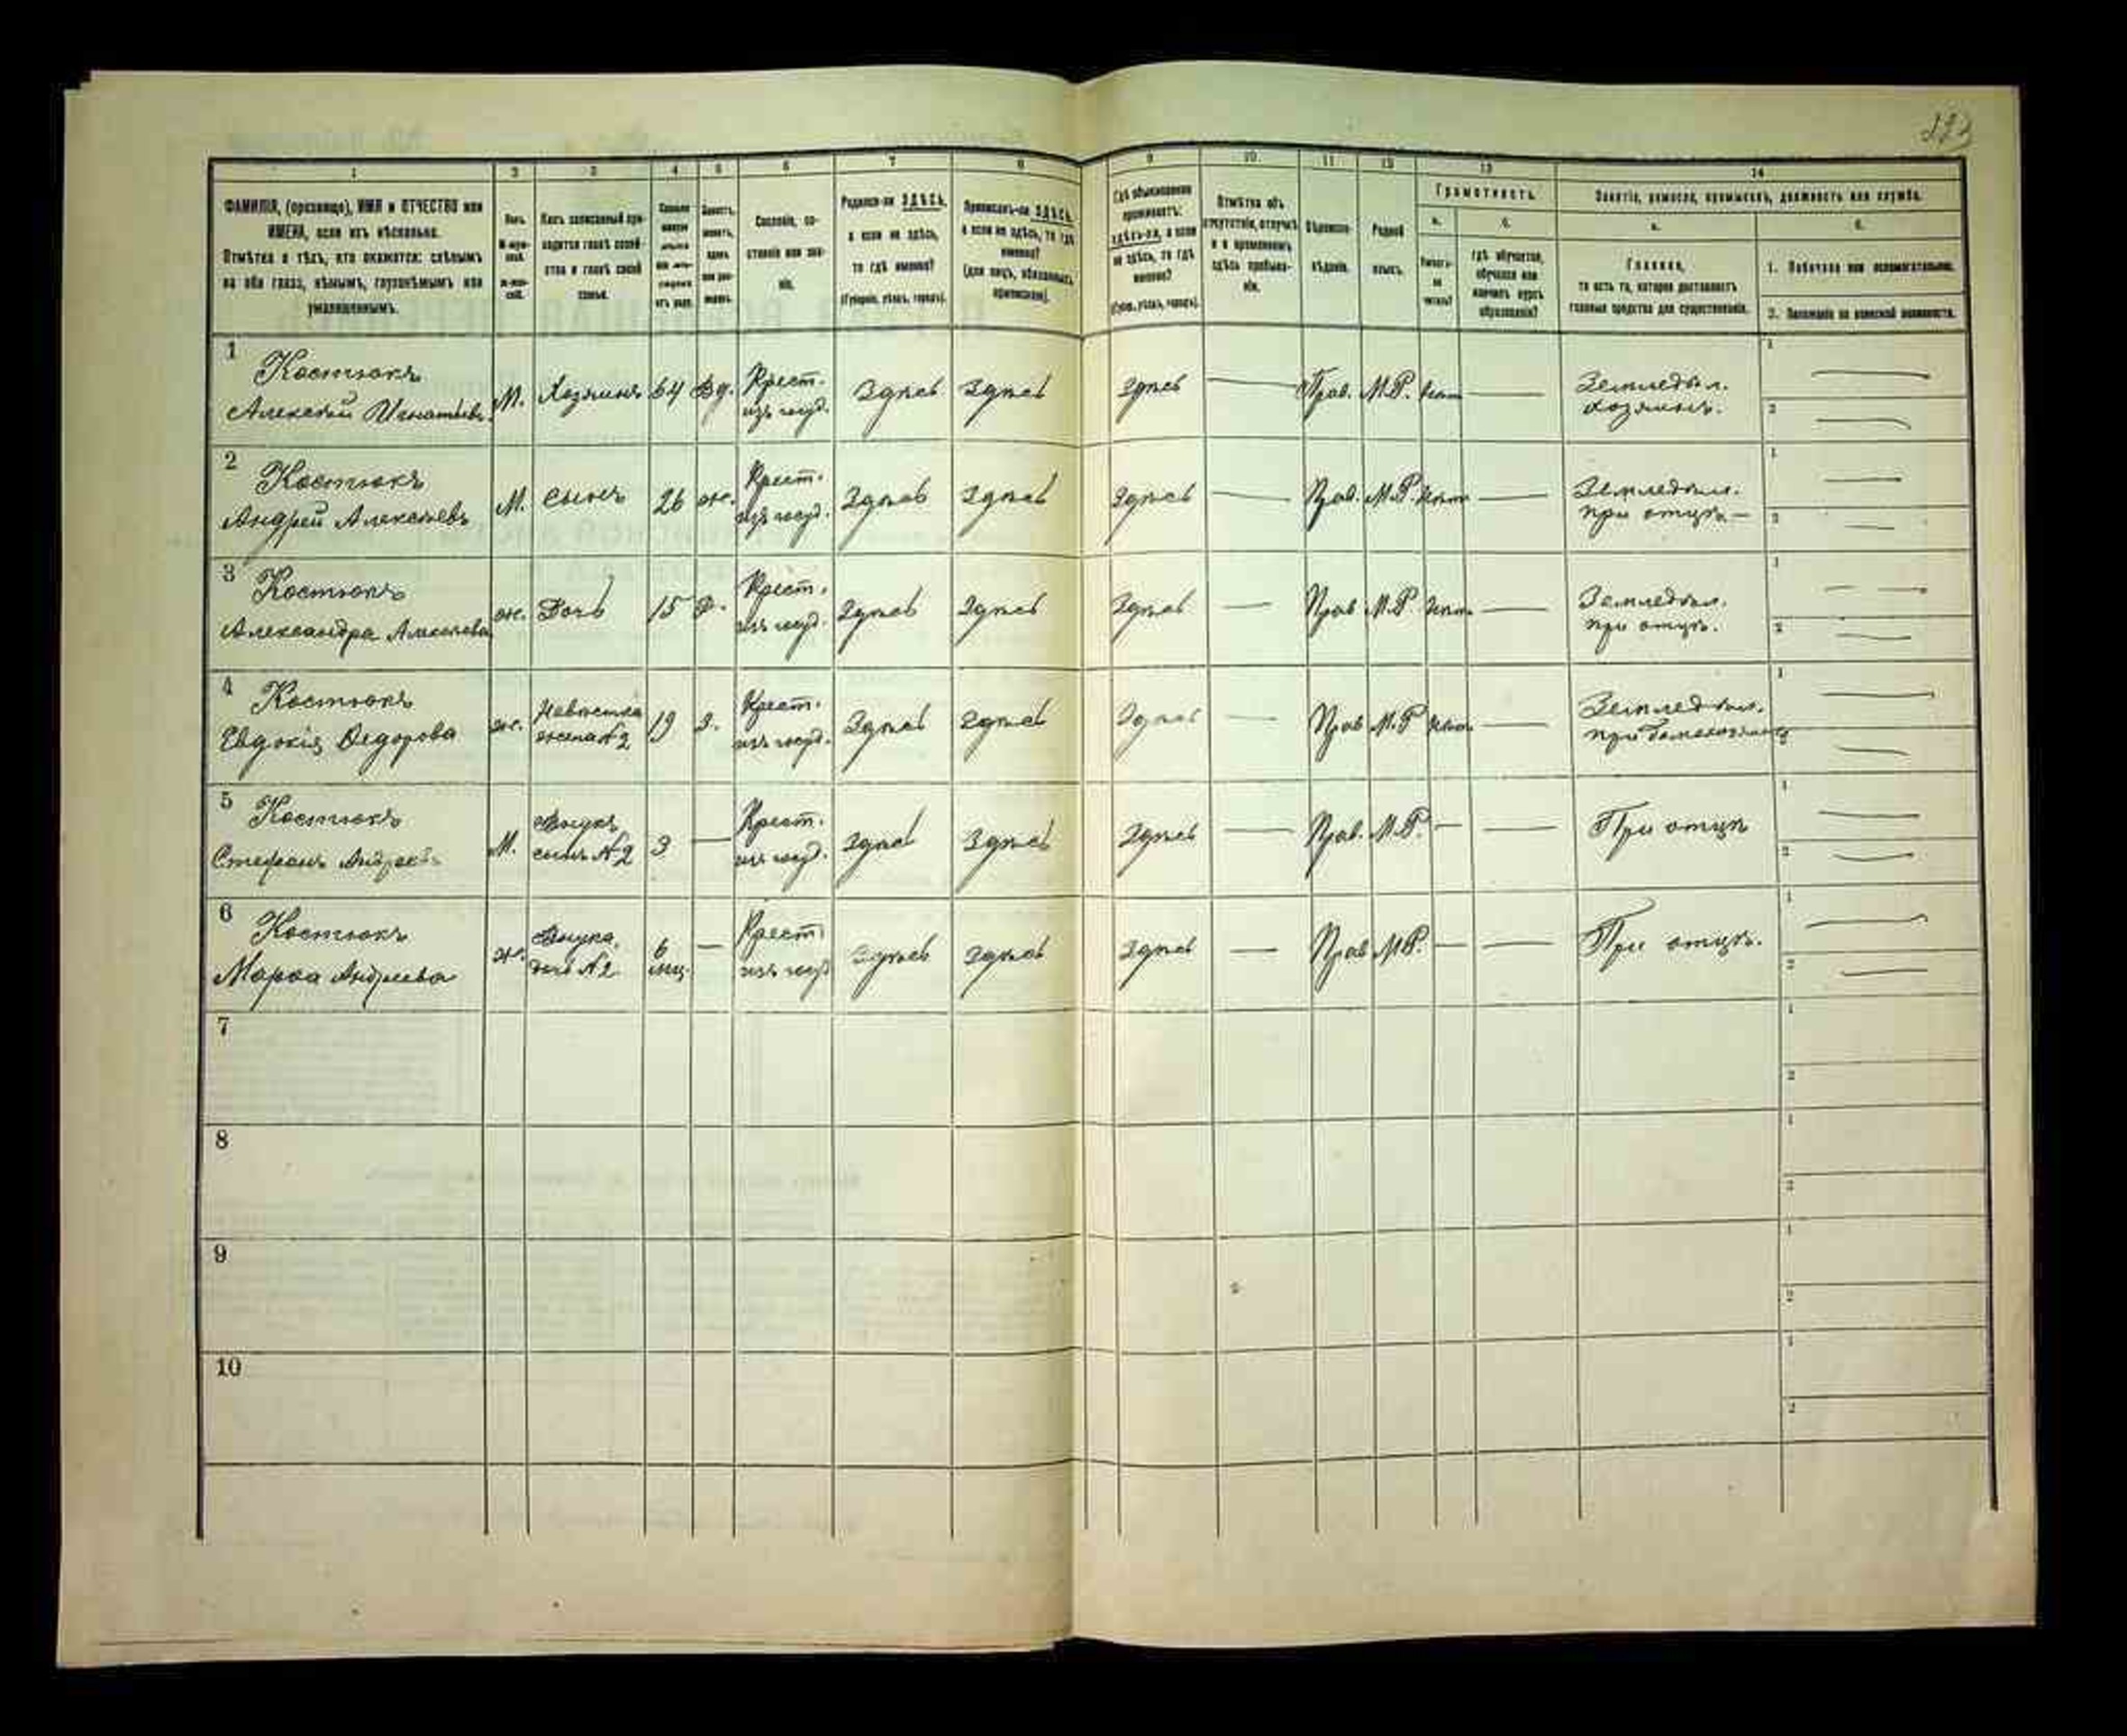 1 2 3 4 5 6 7 8 9 10 11 12 13 14
ФАМИЛІЯ, (прозвище), ИМЯ и ОТЧЕСТВО или
ИМЕНА, если ихъ нѣсколько.
Отмѣтка о тѣхъ, кто окажется: слѣпымъ
на оба глаза, нѣмымъ, глухонѣмымъ или
умалишеннымъ.
Полъ.
Какъ записанный при-
ходится главѣ хозяй-
ства и главѣ своей
семьи.
Сословіе, со-
стояніе или зва-
ніе.
Родился-ли ЗДѢСЬ,
а если не здѣсь,
то гдѣ именно?
(Губернія, уѣздъ, городъ).
Приписанъ-ли ЗДѢСЬ,
а если не здѣсь, то гдѣ
именно?
(для лицъ, обязанныхъ
припискою).
Гдѣ обыкновенно
проживаетъ:
здѣсь-ли, а если
не здѣсь, то гдѣ
именно?
(Губ., уѣздъ, городъ).
Отмѣтка объ
отсутствіи, отлучкѣ
и о временномъ
здѣсь пребыва-
ніи.
Вѣроиспо-
вѣданіе.
Родной
языкъ.
Грамотность.
а. б.
Умѣетъ-
ли
читать?
гдѣ обучается,
обучался или
кончилъ курсъ
образованія?
Занятіе, ремесло, промыселъ, должность или служба.
а. б.
Главное,
то есть то, которое доставляетъ
главныя средства для существованія.
1. Побочное или вспомогательное.
2. Положеніе по воинской повинности.
1 Костюкъ
Алексѣй Игнатьевъ М. Хозяинъ 64 вд. Крест. изъ госуд. Здѣсь Здѣсь Здѣсь — Прав. М.Р. нѣт — Земледѣл. хозяинъ. 1 — 2 —
2 Костюкъ
Андрей Алексѣевъ М. сынъ 26 ж. Крест. изъ госуд. Здѣсь Здѣсь Здѣсь — Прав. М.Р. нѣт — Земледѣл. при отцѣ — 1 — 2 —
3 Костюкъ
Александра Алексѣева ж. Дочь 15 Крест. изъ госуд. Здѣсь Здѣсь Здѣсь — Прав М.Р нѣт — Земледѣл. при отцѣ. 1 — 2 —
4 Костюкъ
Евдокія Ѳедорова ж. Невѣстка жена №2 19 З. Крест. изъ госуд. Здѣсь Здѣсь Здѣсь — Прав М.Р нѣт — Земледѣл. 1 — 2 —
5 Костюкъ
Стефанъ Андреевъ М. Внукъ сынъ №2 3 — Крест. изъ госуд. Здѣсь Здѣсь Здѣсь — Прав. М.Р. — — При отцѣ 1 — 2 —
6 Костюкъ
Марѳа Андреева ж. Внука, дочь №2 6 мц. — Крест. изъ госуд Здѣсь Здѣсь Здѣсь — Прав М.Р. — — При отцѣ. 1 — 2 —
7 1 2
8 1 2
9 1 2
10 1 2